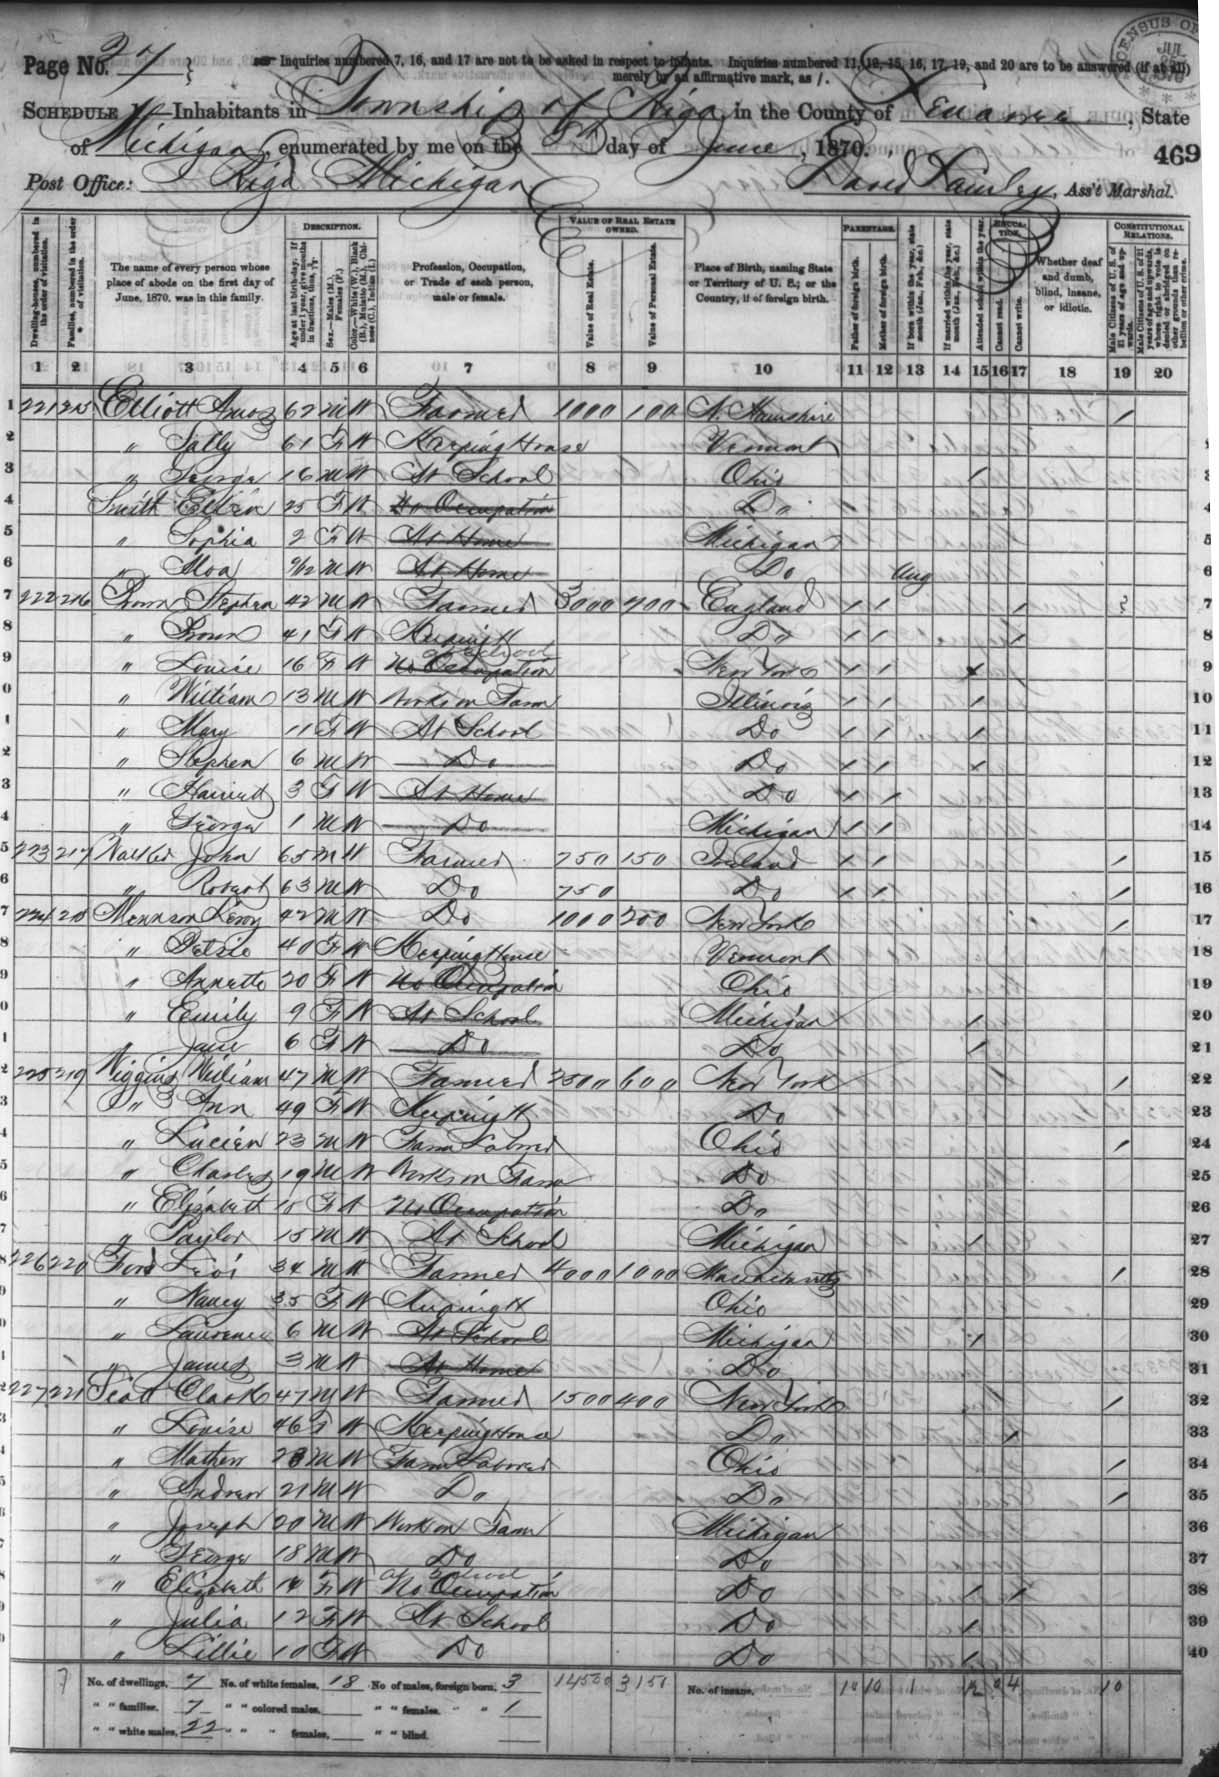 Page No. 27
Inquiries numbered 7, 16, and 17 are not to be asked in respect to infants. Inquiries numbered 11, 12, 15, 16, 17, 19, and 20 are to be answered (if at all)
merely by an affirmative mark, as /.
CENSUS OF
SCHEDULE 1.—Inhabitants in Township of Riga, in the County of Lenawee, State
of Michigan, enumerated by me on the day of June, 1870.
469
Post Office: Riga Michigan David, Ass't Marshal.
DESCRIPTION. VALUE OF REAL ESTATE OWNED. PARENTAGE. EDUCATION. CONSTITUTIONAL RELATIONS.
Dwelling-houses, numbered in the order of visitation.
Families, numbered in the order of visitation.
The name of every person whose place of abode on the first day of June, 1870, was in this family.
Age at last birth-day. If under 1 year, give months in fractions, thus, 3/12.
Sex.—Males (M.), Females (F.)
Color.—White (W.), Black (B.), Mulatto (M.), Chinese (C.), Indian (I.)
Profession, Occupation, or Trade of each person, male or female.
Value of Real Estate.
Value of Personal Estate.
Place of Birth, naming State or Territory of U. S.; or the Country, if of foreign birth.
Father of foreign birth.
Mother of foreign birth.
If born within the year, state month (Jan., Feb., &c.)
If married within the year, state month (Jan., Feb., &c.)
Attended school within the year.
Cannot read.
Cannot write.
Whether deaf and dumb, blind, insane, or idiotic.
Male Citizens of U. S. of 21 years of age and upwards.
Male Citizens of U. S. of 21 years of age and upwards, whose right to vote is denied or abridged on other grounds than rebellion or other crime.
1 2 3 4 5 6 7 8 9 10 11 12 13 14 15 16 17 18 19 20
1 221 215 Elliott Amos 62 M W Farmer 1000 100 N. Hamshire /
2 " Sally 61 F W Keeping House Vermont
3 " George 16 M W At School Ohio / 3
4 Smith Ellen 25 F W No Occupation Do 4
5 " Sophia 2 F W At Home Michigan 5
6 " 9/12 M W At Home Do Aug 6
7 222 216 Brown Stephen 42 M W Farmer 3000 700 England / / / 7
8 " 41 F W Keeping H Do / / / 8
9 " Louise 16 F W No Occupation At School New York / / / 9
" William 13 M W Works on Farm Illinois / / / 10
" Mary 11 F W At School Do / / / 11
" Stephen 6 M W Do Do / / / 12
" Harriett 3 F W At Home Do / / 13
" George 1 M W Do Michigan / / 14
223 217 John 65 M W Farmer 750 150 Ireland / / / 15
" Robert 63 M W Do 750 Do / / / 16
224 218 Leroy 42 M W Do 1000 200 New York / 17
" Betsie 40 F W Keeping House Vermont 18
" Annette 20 F W No Occupation Ohio 19
" Emily 9 F W At School Michigan / 20
" Jane 6 F W Do Do / 21
225 219 Wiggins William 47 M W Farmer 2500 600 New York / 22
" Ann 49 F W Keeping H Do 23
" Lucien 23 M W Farm Laborer Ohio / 24
" Charles 19 M W Works on Farm Do 25
" Elizabeth 18 F W No Occupation Do 26
" Taylor 15 M W At School Michigan / 27
226 220 Ford Levi 34 M W Farmer 4000 1000 Massachusetts / 28
" Nancy 35 F W Keeping H Ohio 29
" Laurence 6 M W At School Michigan / 30
" James 3 M W At Home Do 31
227 221 Scott Clark 47 M W Farmer 1500 400 New York / 32
" Louise 46 F W Keeping House Do / 33
" Mathew 23 M W Farm Laborer Ohio / 34
" Andrew 21 M W Do Do / 35
" Joseph 20 M W Work on Farm Michigan 36
" George 18 M W Do Do 37
" Elizabeth 14 F W No Occupation At School Do / / 38
" Julia 12 F W At School Do / 39
" Lillie 10 F W Do Do / 40
7 No. of dwellings, 7 No. of white females, 18 No. of males, foreign born, 3 14500 3150 No. of insane, 10 10 1 12 0 4 10
" " families, 7 " " colored males, " " females, " " 1
" " white males, 22 " " " females, " " blind.